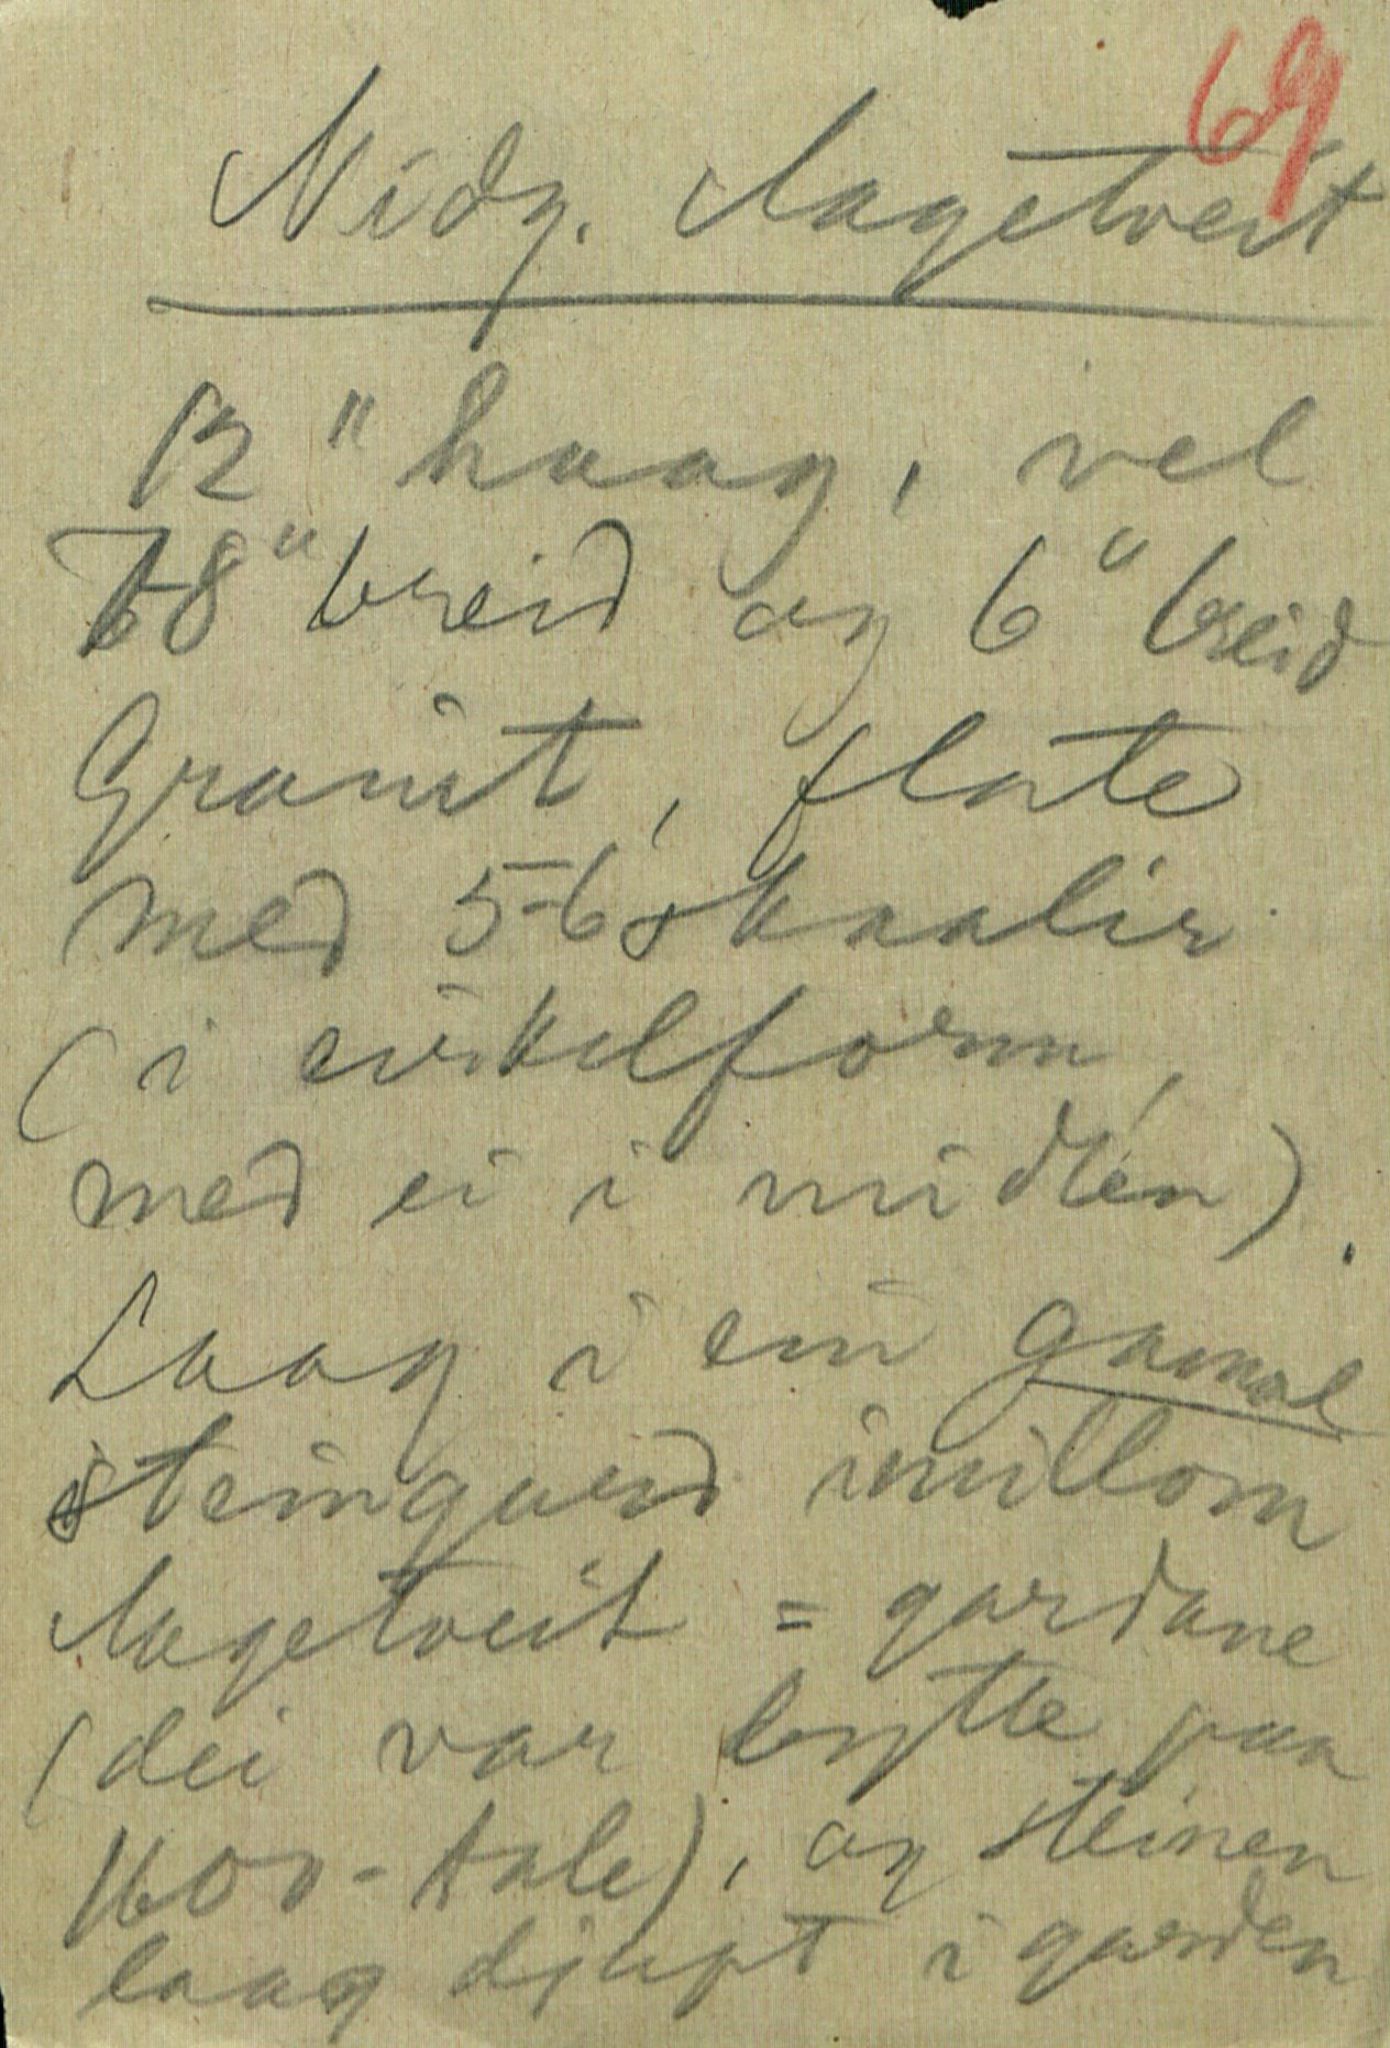 69
Nidg. Aagetveit
12" haag, vel
7-8" breid og 6" breid
Granit, flate
med 5-6 skaalir
(i cirkelform,
med ei i midten).
Laag i ein gamal
steingard imillom
Aagetveit = gardane
(dei var bytte paa
1600-tale), og steinen
laag djupt i garden